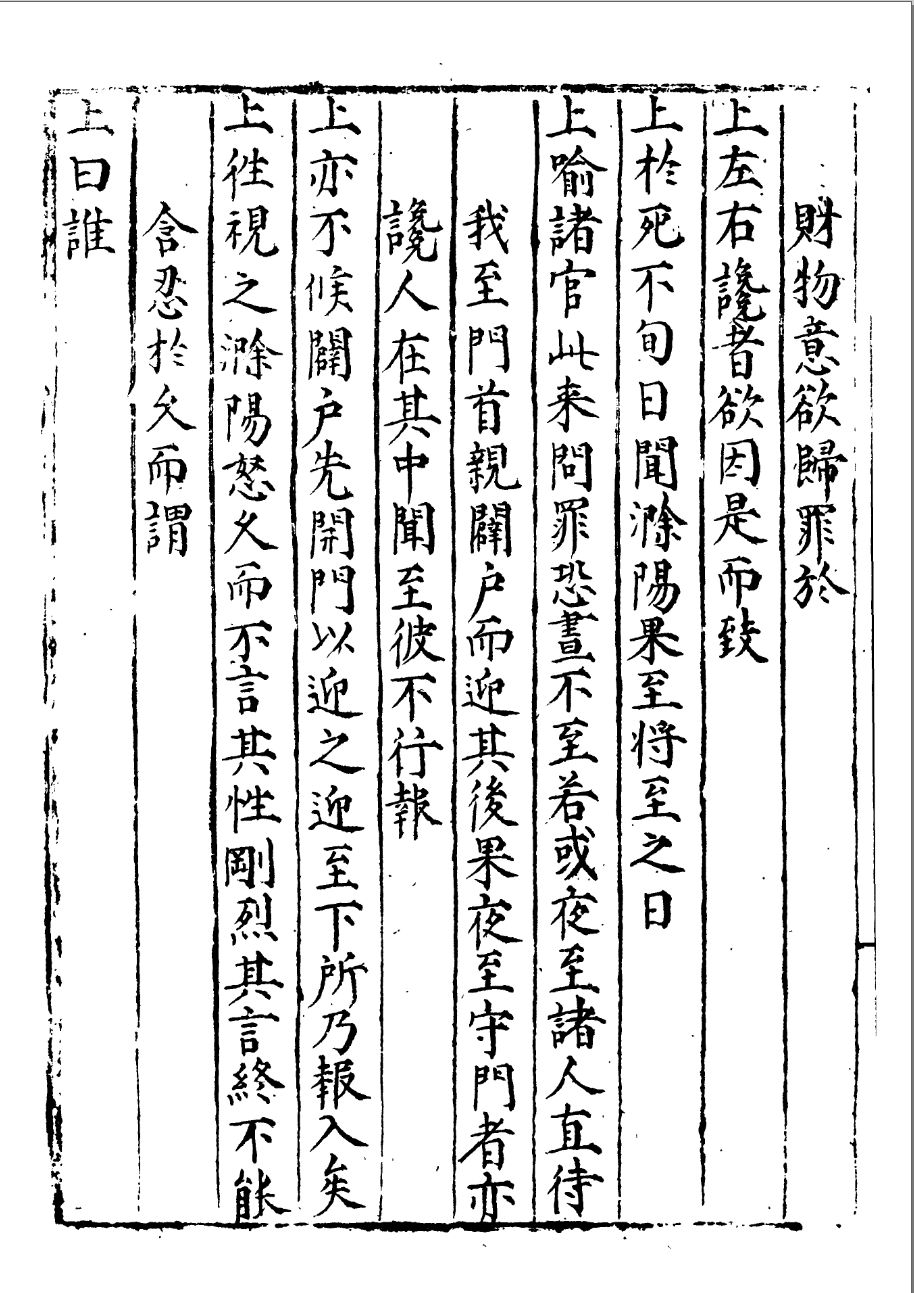 財物意欲歸罪於
上左右讒者欲因是而致
上於死不旬日聞滁陽果至將至之日
上喻諸官此来問罪恐晝不至若或夜至諸人直待
我至門首親闢户而迎其後果夜至守門者亦
讒人在其中聞至彼不行報
上亦不候闢户先開門以迎之迎至下所乃報入矣
上徃視之滁陽怒久而不言其性剛烈其言終不能
含忍於久而謂
上曰誰